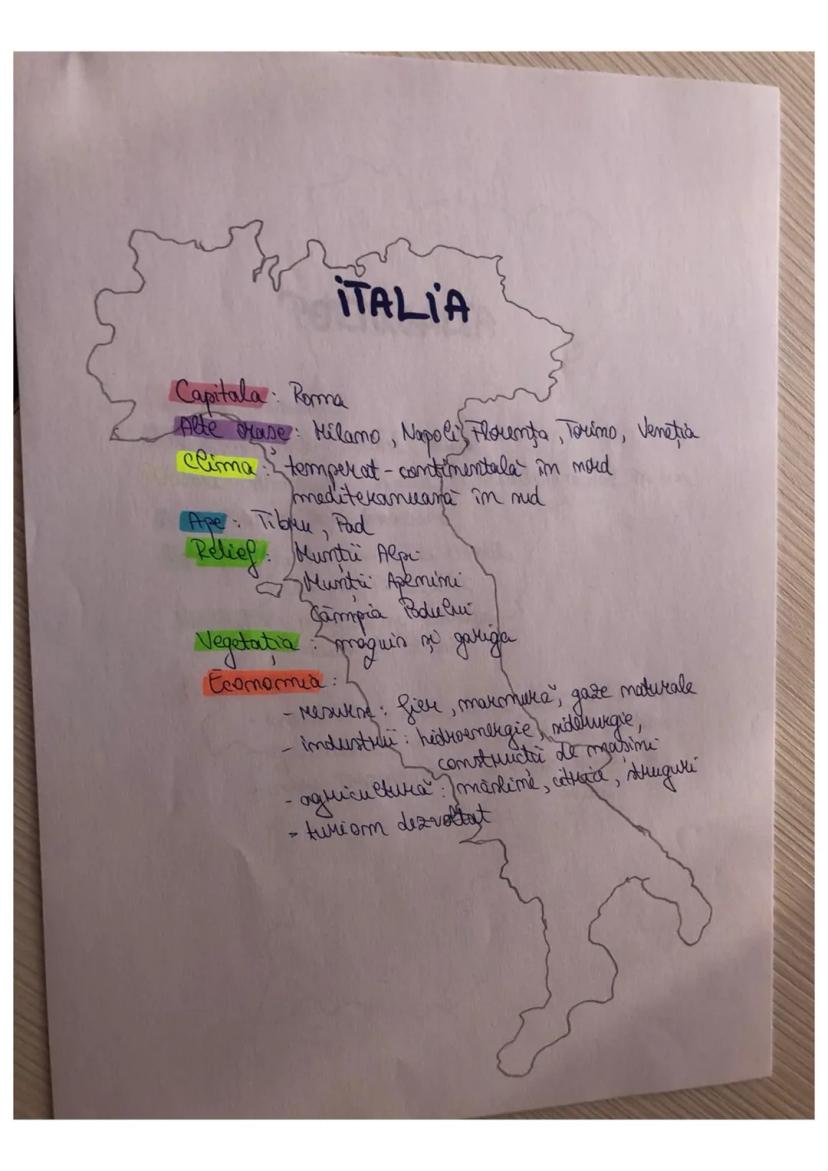 iTALiA
Capitala: Roma
Alte orașe: Milano, Napoli, Florența, Torino, Veneția
Clima: temperat-continentală în nord
mediteraneană în sud
Ape: Tibru, Pad
Relief: Munții Alpi
Munții Apenini
Câmpia Padului
Vegetația: maquis și gariga
Economia:
- resurse: fier, marmură, gaze naturale
- industrii: hidroenergie, siderurgie,
construcții de mașini
- agricultură: măsline, citrice, struguri
- turism dezvoltat